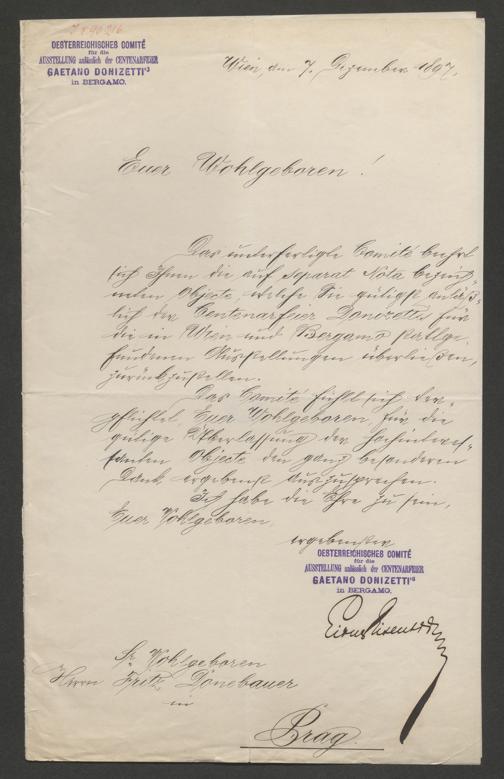 OESTERREICHISCHES COMITÉ
für die
AUSSTELLUNG anlässlich der CENTENARFEIER
GAETANO DONIZETTI'S
in BERGAMO.
Wien, am 7. Dezember 1897.
Euer Wohlgeboren!
Das unterfertigte Comité beehrt
sich Ihnen die auf separat Nota bezeich-
neten Objecte, welche Sie gütigst anläß-
lich der Centenarfeier Donizettis für
die in Wien und Bergamo stattge-
fundenen Ausstellungen überließen,
zurückzustellen.
Das Comité fühlt sich ver-
pflichtet, Euer Wohlgeboren für die
gütige Überlassung der hochinteres-
santen Objecte den ganz besonderen
Dank ergebenst auszusprechen.
Ich habe die Ehre zu sein,
Euer Wohlgeboren
ergebenster
OESTERREICHISCHES COMITÉ
für die
AUSSTELLUNG anlässlich der CENTENARFEIER
GAETANO DONIZETTI'S
in BERGAMO.
Sr Wohlgeboren
Herrn Fritz Donebauer
in
Prag.